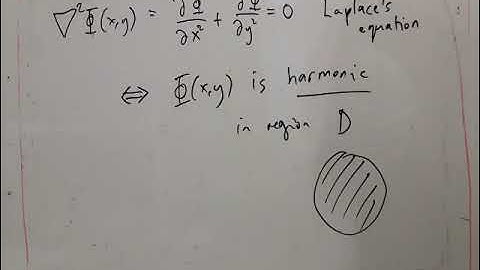 ∇²Φ(x,y) = ∂²Φ/∂x² + ∂²Φ/∂y² = 0 Laplace's equation
⇔ Φ(x,y) is harmonic
in region D